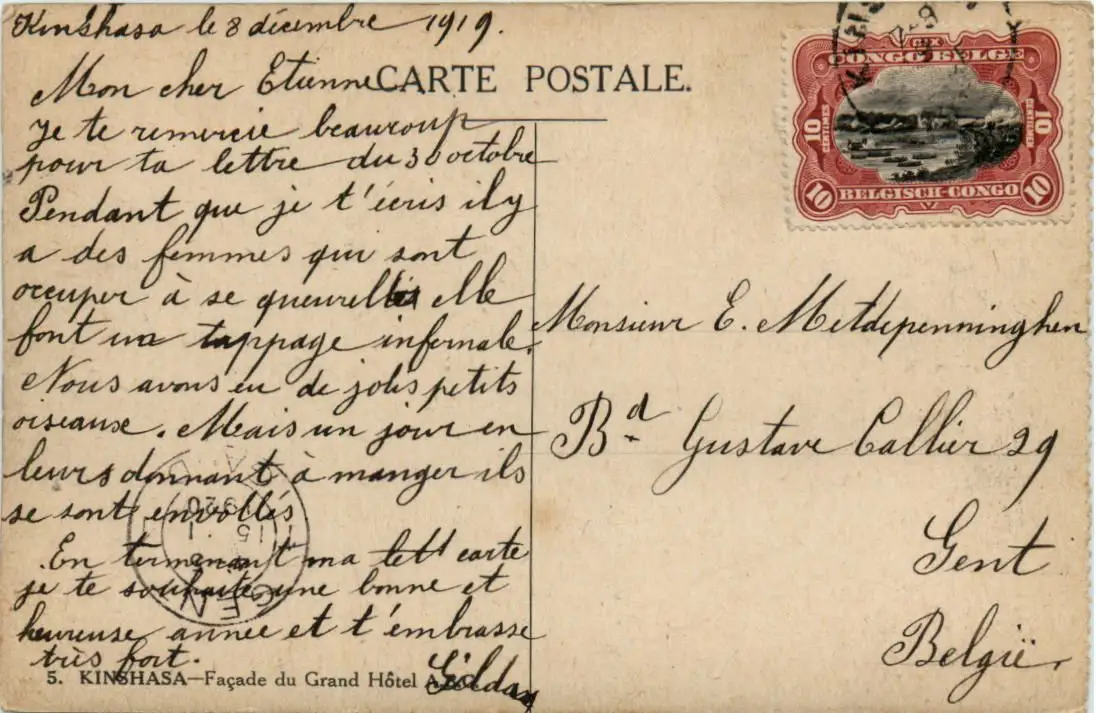 Kinshasa le 8 décembre 1919.
Mon cher Etienne
Je te remercie beaucoup
pour ta lettre du 30 octobre
Pendant que je t'écris il y
a des femmes qui sont
occuper à se queureller elle
font un tappage infernale.
Nous avons eu de jolis petits
oiseause. Mais un jour en
leurs donnant à manger ils
se sont envollés
En terminant ma carte
je te souhaite une bonne et
heureuse année et t'embrasse
très fort.
Gilda
CARTE POSTALE.
CONGO BELGE
10 CENTIMES
10 CENTIMES
BELGISCH-CONGO
10 10
Monsieur E. Metdepenninghen
Bd Gustave Callier 29
Gent
België.
GENT
15 1
1920
5. KINSHASA—Façade du Grand Hôtel A.B.C.